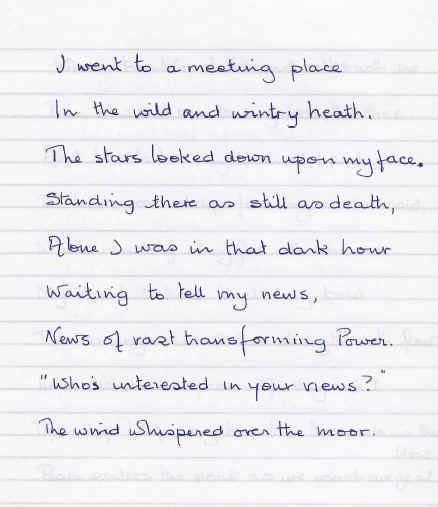 I went to a meeting place
In the wild and wintry heath.
The stars looked down upon my face.
Standing there as still as death,
Alone I was in that dark hour
Waiting to tell my news,
News of vast transforming Power.
"Who's interested in your news?"
The wind whispered over the moor.